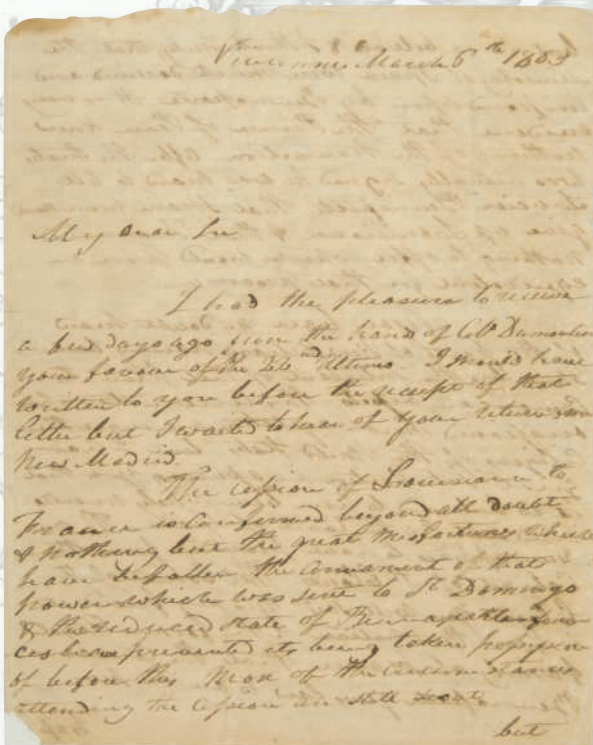 Vincennes March 6th 1803
My dear Sir
I had the pleasure to receive
a few days ago from the hand of Coll
your favour of the 22nd Ultimo I would have
written to you before the receipt of that
letter but I waited to hear of your return from
New Madrid
The cession of Louisiana to
France is confirmed beyond all doubt
& nothing but the great misfortunes which
have befallen the armament of that
power which was sent to St Domingo
& the reduced state of
prevented its being taken possession
of before this Most of the circumstances
attending the cession are still secret
but